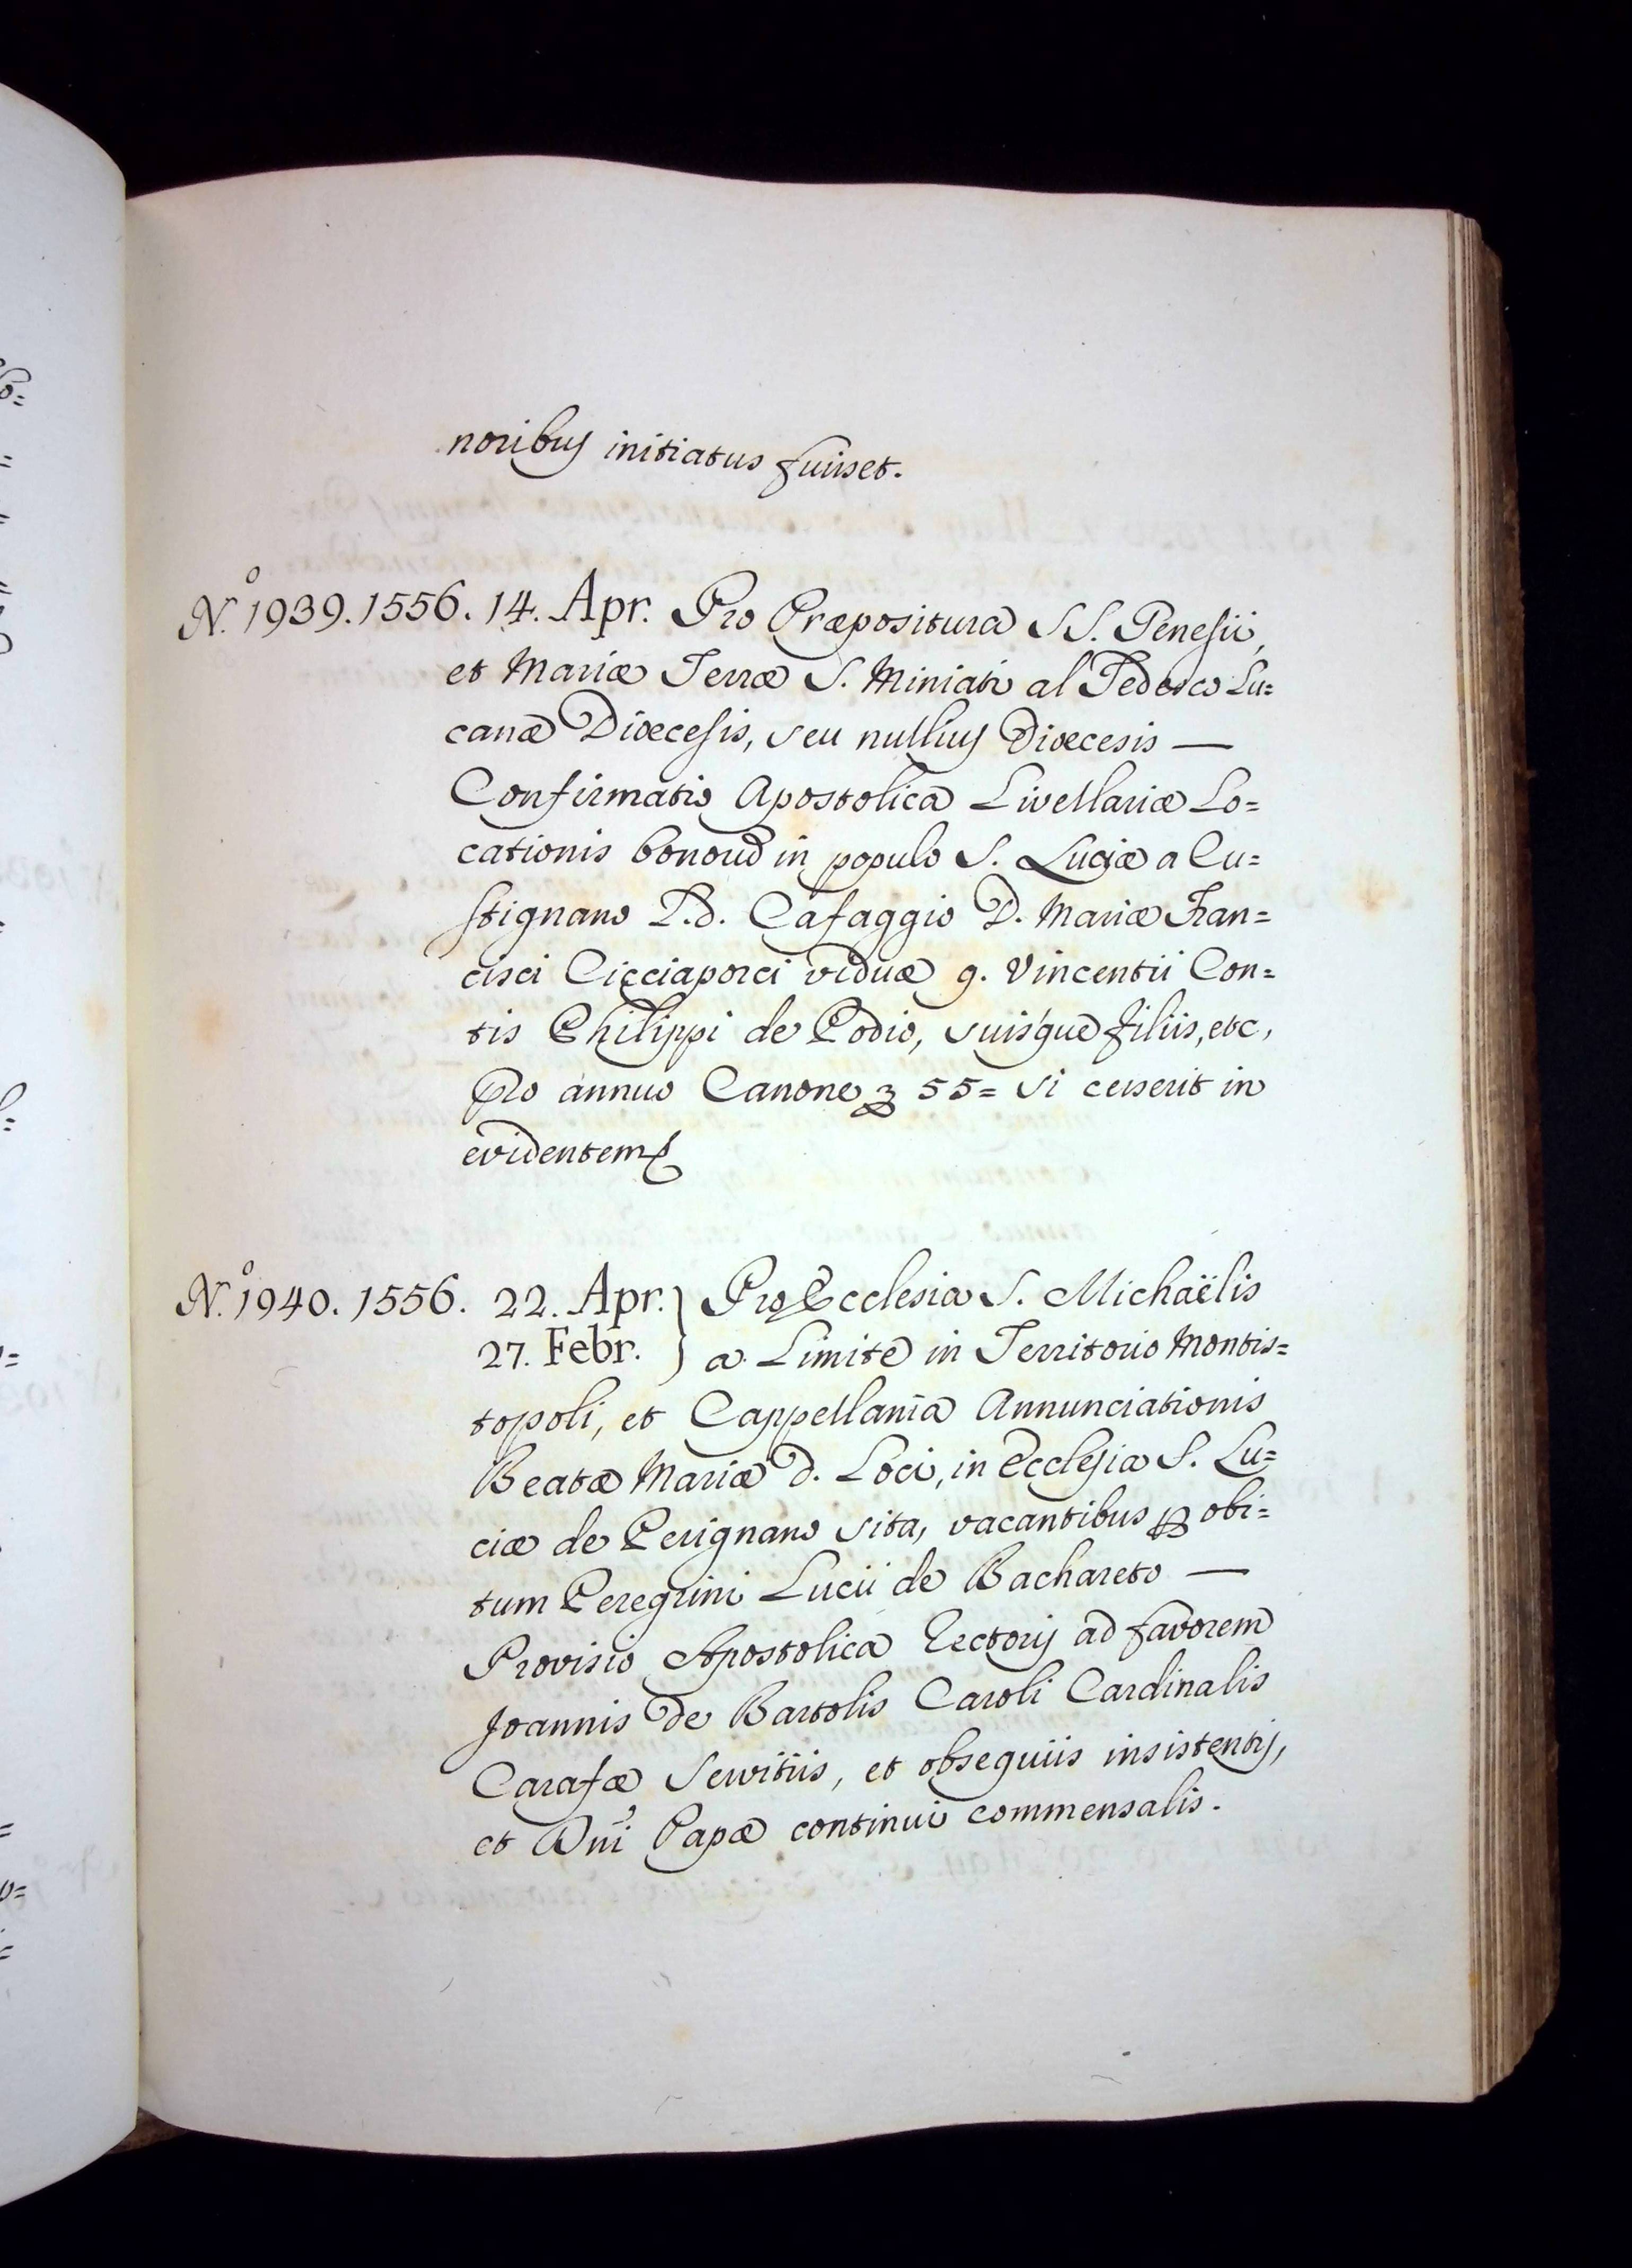 noribus initiatus fuisset.
N.º 1939. 1556. 14. Apr. Pro Præpositura SS. Genesii,
et Mariæ Terræ S. Miniati al Tedesco Lu=
canæ Diœcesis, seu nullius Diœcesis —
Confirmatio Apostolica Livellariæ Lo=
cationis bonorũ in populo S. Luciæ a Cu=
stignano L.d. Cafaggio D. Mariæ Fran=
cisci Cicciaporci viduæ q. Vincentii Con=
tis Philippi de Podio, suisque filiis, etc,
pro annuo Canone 55= si cesserit in
evidentem
N.º 1940. 1556. 22. Apr. } Pro Ecclesia S. Michaëlis
27. Febr. } a Limite in Territorio Montis=
topoli, et Cappellania Annunciationis
Beatæ Mariæ d. Loci, in Ecclesia S. Lu=
ciæ de Perignano sita, vacantibus ꝑ obi=
tum Peregrini Lucii de Bachareto —
Provisio Apostolica Rectoris ad favorem
Joannis de Bartolis Caroli Cardinalis
Carafæ Servitiis, et obsequiis insistentis,
et Dñi Papæ continui commensalis.